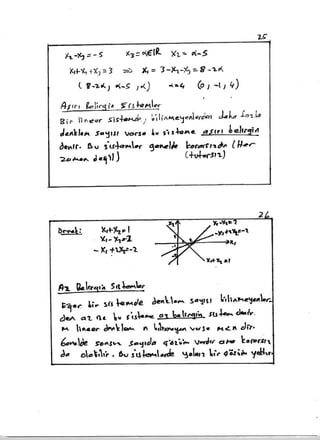 25
x₂-x₃ = -5     x₃=α∈ℝ     x₂ = α-5
x₁+x₂+x₃ = 3  ⇒  x₁ = 3-x₂-x₃ = 8-2α
( 8-2α ; α-5 ; α )     α=4     (0; -1; 4)
Aşırı Belirgin Sistemler
Bir lineer sistemde, bilinmeyenlerden daha fazla
denklem sayısı varsa bu sisteme aşırı belirgin
denir. Bu sistemler genelde kararsızdır (Her
zaman değil)     (tutarsız)
26
Örnek:   x₁+x₂=1
x₁-x₂=2
-x₁+2x₂=-2
x₁-x₂=2
-x₁+2x₂=-2
x₁
x₁+x₂=1
Az Belirgin Sistemler
Eğer bir sistemde denklem sayısı bilinmeyenler-
den az ise bu sisteme az belirgin sistem denir.
m lineer denklem n bilinmeyen varsa m<n dir.
Genelde sonsuz sayıda çözüm vardır ama kararsız
da olabilir. Bu sistemlerde yalnız bir çözüm yoktur.